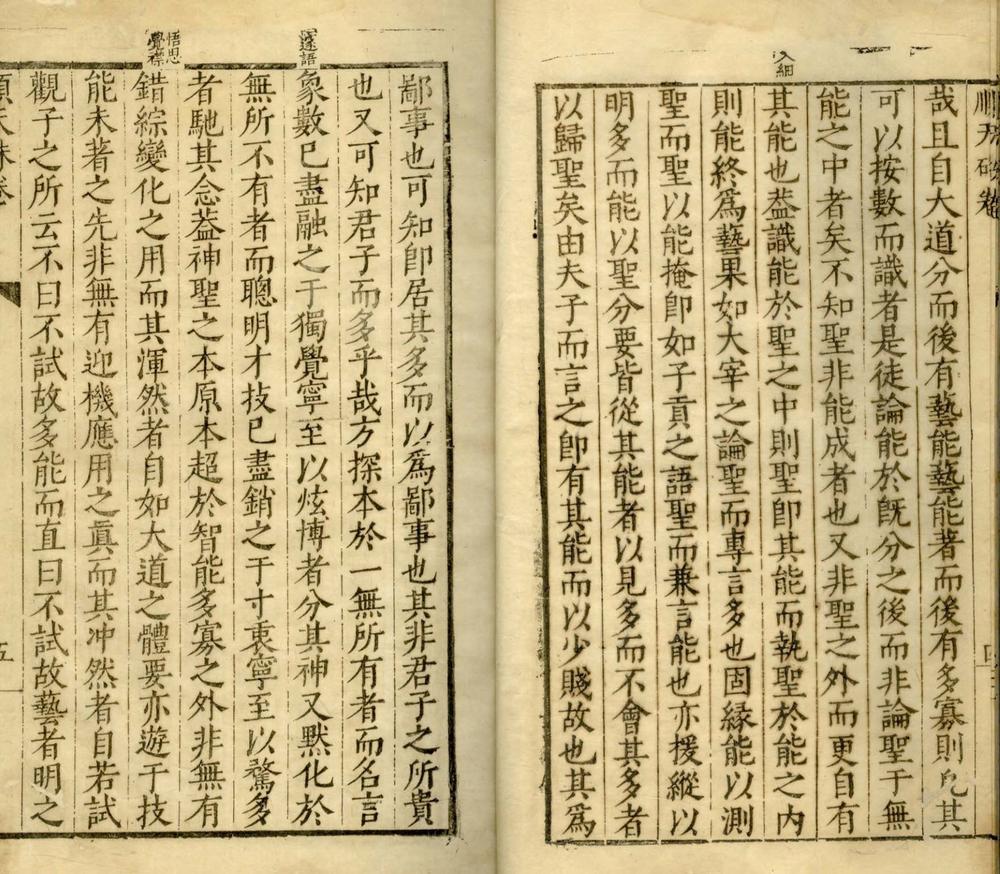 順天硃卷
入細
哉且自大道分而後有藝能藝能著而後有多寡則凡其
可以按數而識者是徒論能於旣分之後而非論聖于無
能之中者矣不知聖非能成者也又非聖之外而更自有
其能也葢識能於聖之中則聖卽其能而執聖於能之內
則能終爲藝果如大宰之論聖而專言多也固緣能以測
聖而聖以能掩卽如子貢之語聖而兼言能也亦援縱以
明多而能以聖分要皆從其能者以見多而不會其多者
以歸聖矣由夫子而言之卽有其能而以少賤故也其爲
邃語
悟思
覺襟
鄙事也可知卽居其多而以爲鄙事也其非君子之所貴
也又可知君子而多乎哉方探本於一無所有者而名言
象數已盡融之于獨覺寧至以炫博者分其神又黙化於
無所不有者而聰明才技已盡銷之于寸衷寧至以驚多
者馳其念葢神聖之本原本超於智能多寡之外非無有
錯綜變化之用而其渾然者自如大道之體要亦遊于技
能未著之先非無有迎機應用之眞而其冲然者自若試
觀子之所云不曰不試故多能而直曰不試故藝者明之
順天硃卷
五